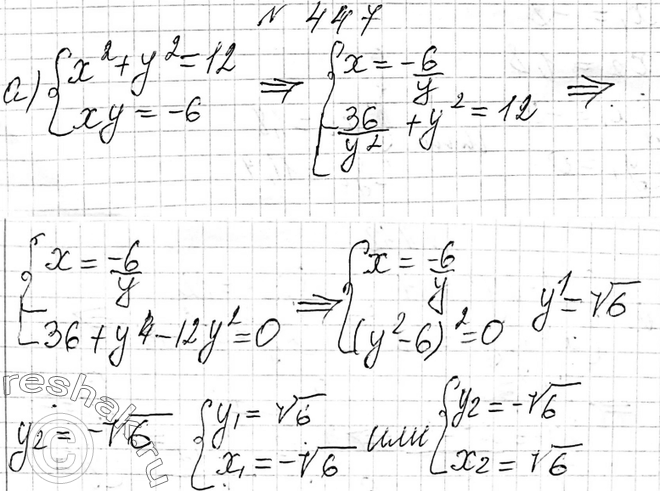 N 447
а) { x² + y² = 12 ; xy = -6 ⇒ { x = -6/y ; 36/y² + y² = 12 ⇒
{ x = -6/y ; 36 + y⁴ - 12y² = 0 ⇒ { x = -6/y ; (y² - 6)² = 0 y¹ = √6
y₂ = -√6 { y₁ = √6 ; x₁ = -√6 или { y₂ = -√6 ; x₂ = √6
reshak.ru
©